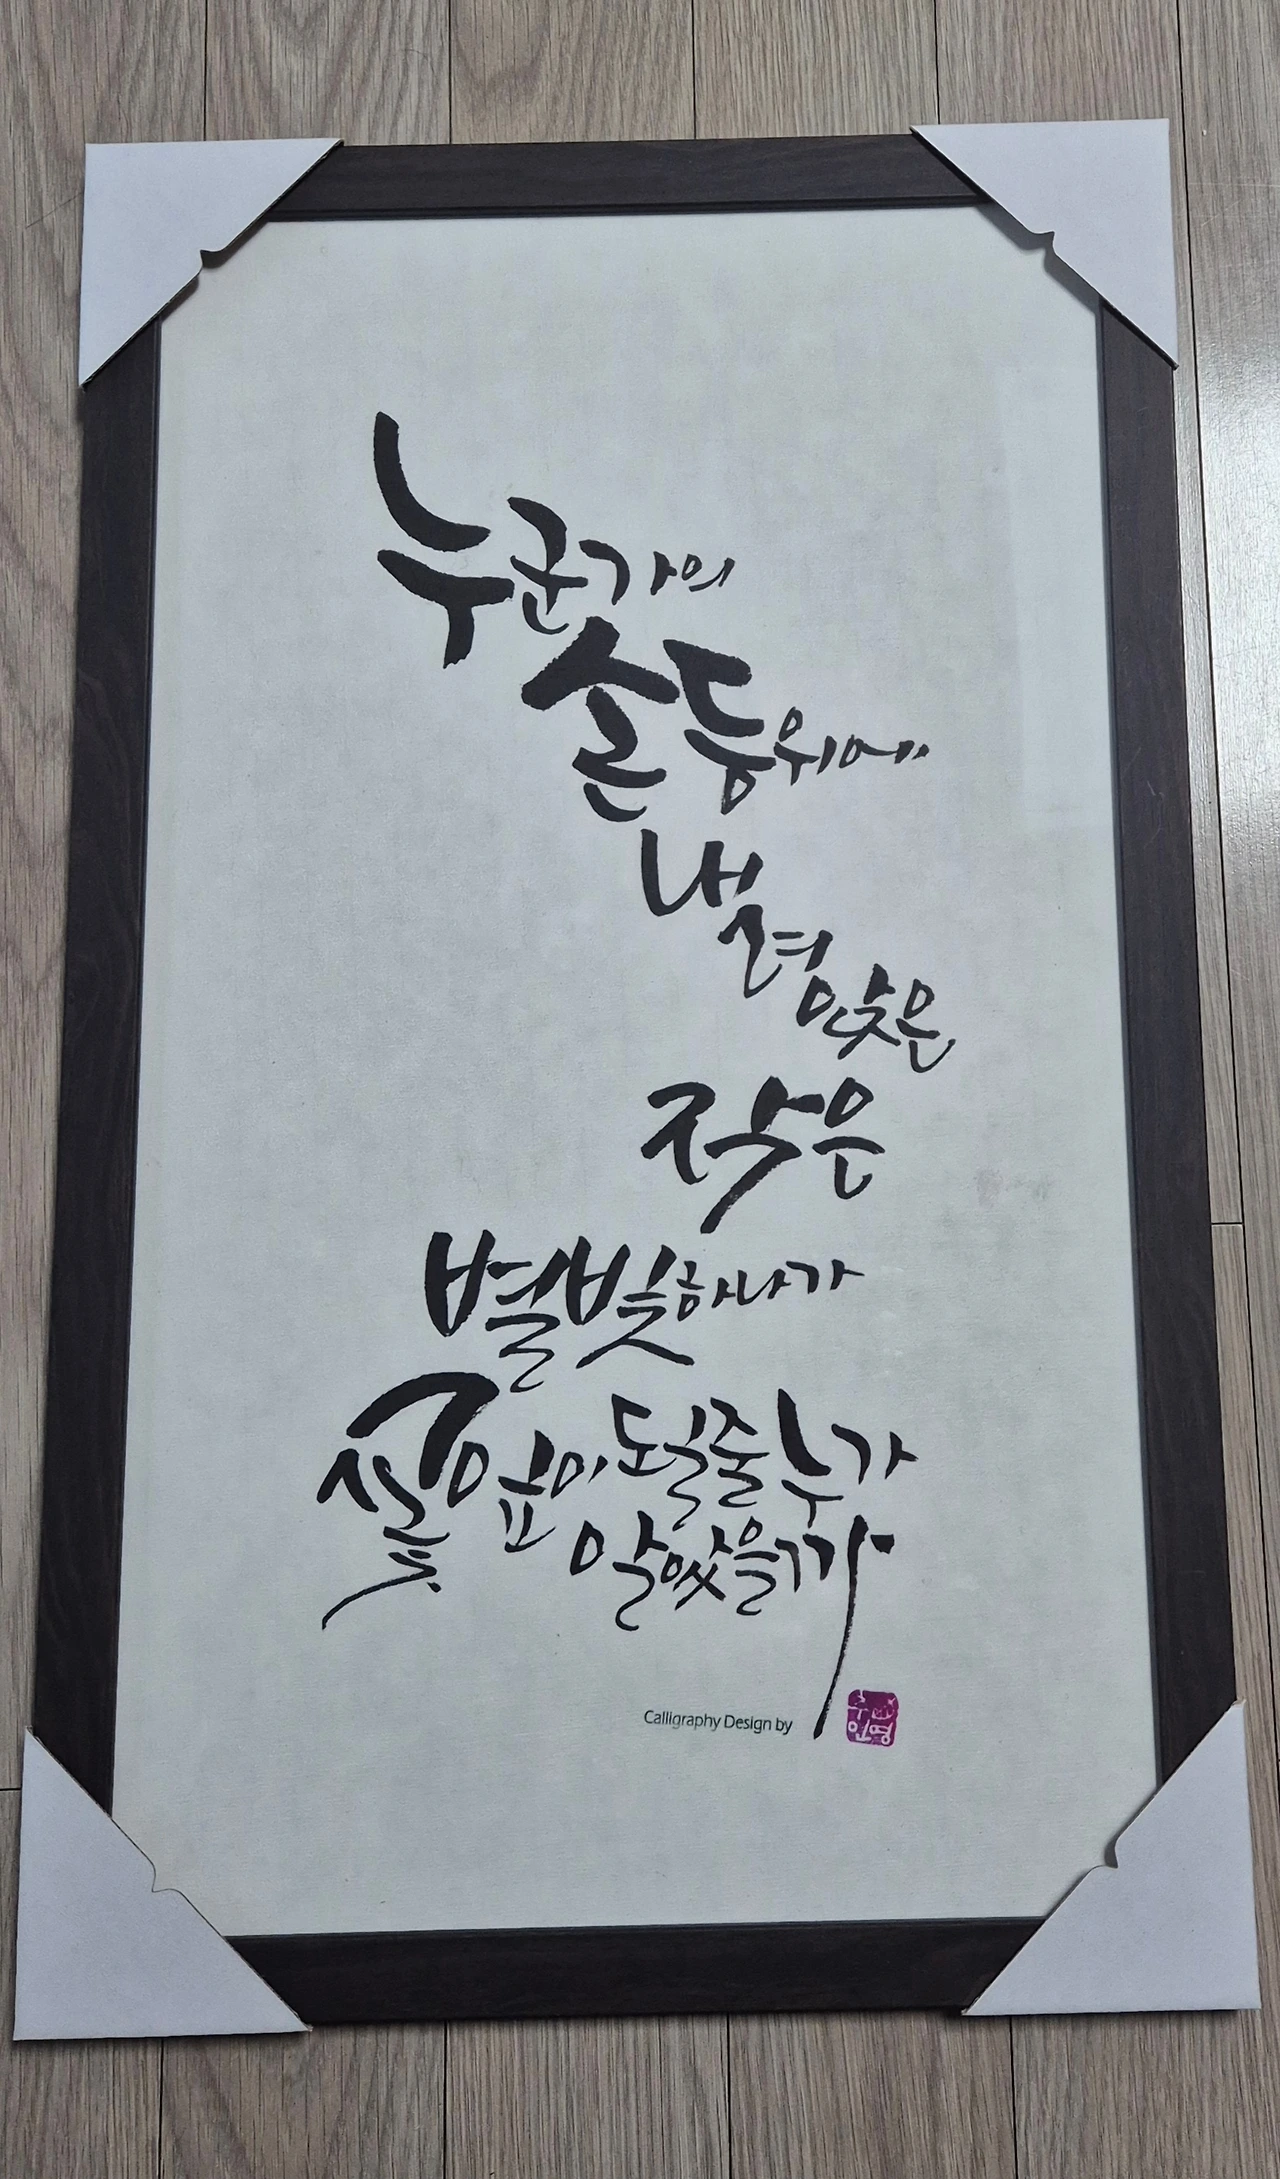 누군가의
손등위에
내려앉은
작은
별빛하나가
될줄 누가
알았을까
Calligraphy Design by
인영